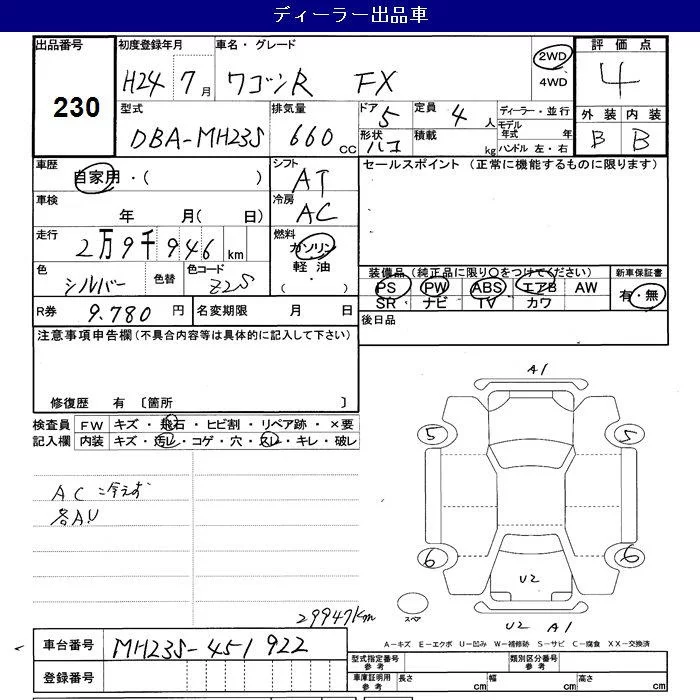 ディーラー出品車
出品番号
230
初度登録年月
H24 7月
車名・グレード
ワゴンR FX
2WD
4WD
評価点
4
型式
DBA-MH23S
排気量
660 cc
ドア
5
定員
4人
形状
ハコ
積載
kg
ディーラー・並行
モデル年式 年
ハンドル 左・右
外装 内装
B B
車歴
自家用・( )
シフト
AT
セールスポイント (正常に機能するものに限ります)
車検
年 月( 日)
冷房
AC
走行
2万9千946km
燃料
ガソリン
軽油
・( )
色
シルバー
色替
色コード
Z2S
装備品(純正品に限り○をつけてください)
PS PW ABS エアB AW
SR ナビ TV カワ
新車保証書
有・無
R券 9.780 円
名変期限 月 日
後日品
注意事項申告欄(不具合内容等は具体的に記入して下さい)
修復歴 有 〔箇所 〕
検査員記入欄
FW キズ・飛石・ヒビ割・リペア跡・×要
内装 キズ・汚レ・コゲ・穴・スレ・キレ・破レ
AC冷えず
各A.U
A1
5 5
6 6
U2
スペア
U2 A1
29947km
A-キズ E-エクボ U-凹み W-補修跡 S-サビ C-腐食 XX-交換済
車台番号 MH23S-451922
登録番号
型式指定番号参考
類別区分番号参考
車庫証明用参考
長さ cm 幅 cm 高さ cm